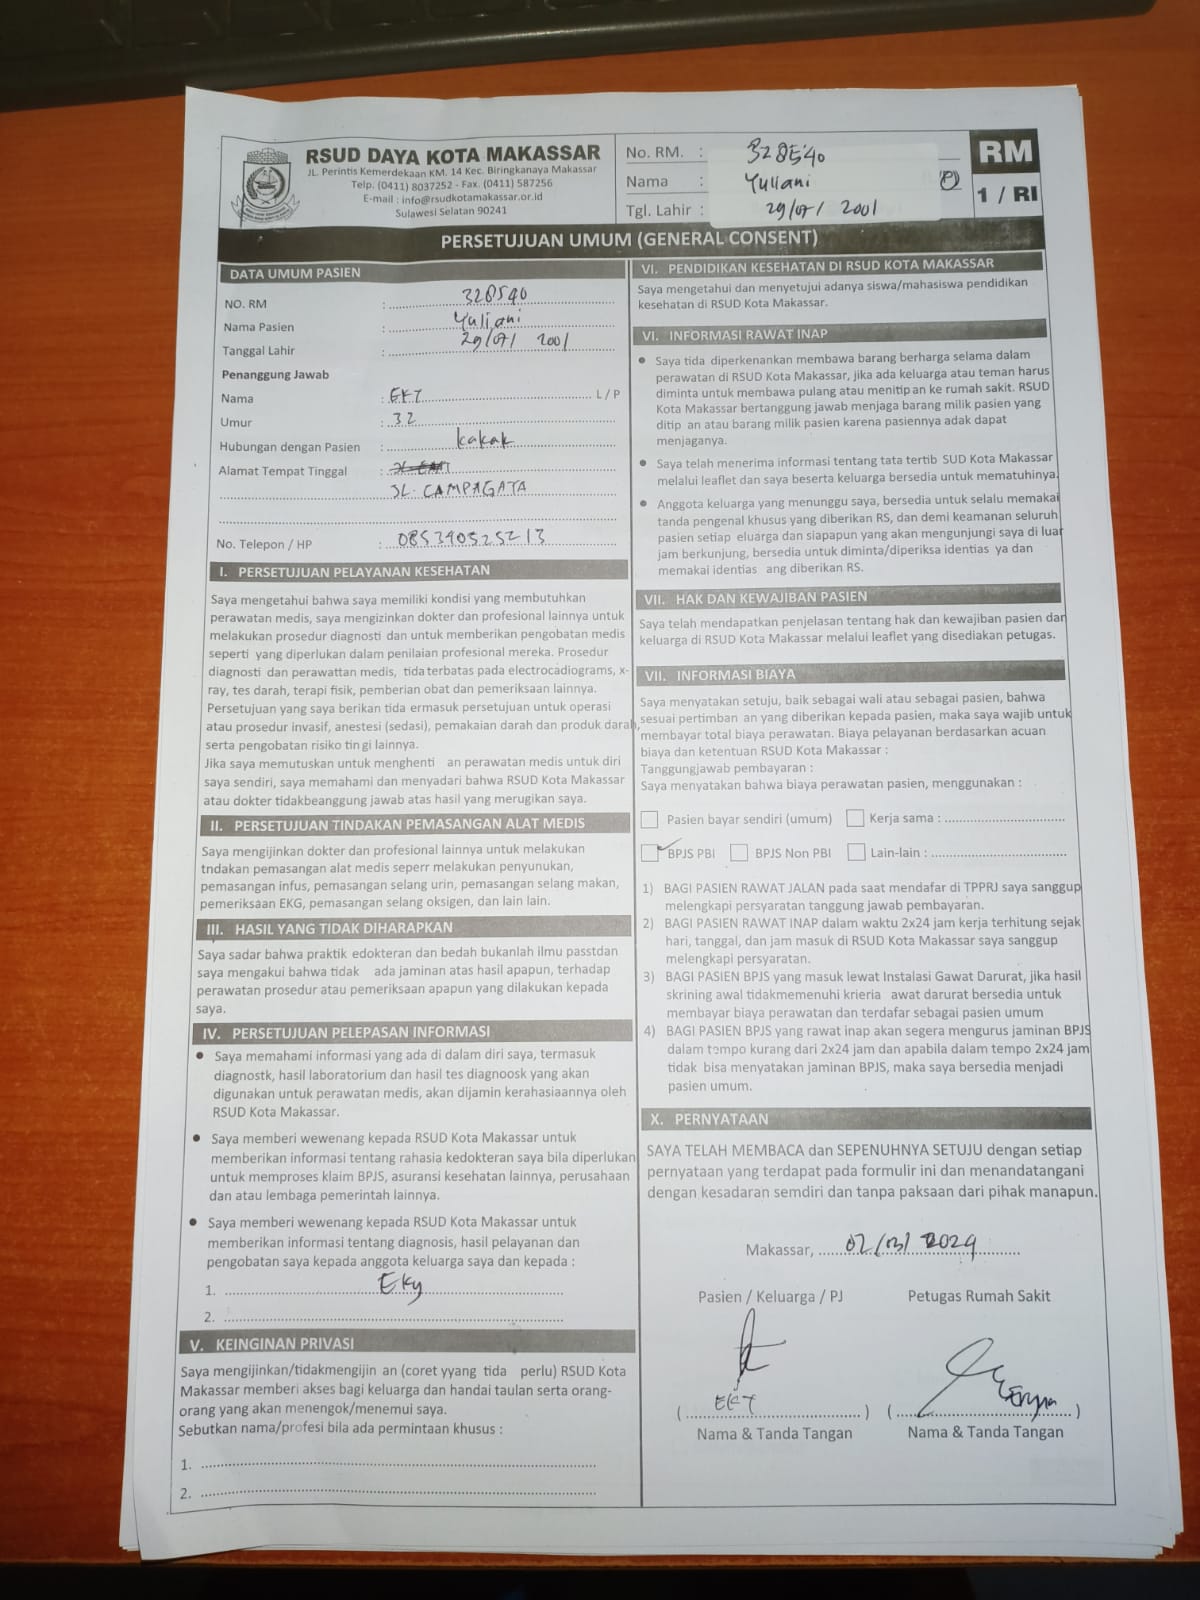 RSUD DAYA KOTA MAKASSAR
JL. Perintis Kemerdekaan KM. 14 Kec. Biringkanaya Makassar
Telp. (0411) 8037252 - Fax. (0411) 587256
E-mail : info@rsudkotamakassar.or.id
Sulawesi Selatan 90241
No. RM. : 328540
Nama : Yuliani (P)
Tgl. Lahir : 29/07/ 2001
RM
1 / RI
PERSETUJUAN UMUM (GENERAL CONSENT)
DATA UMUM PASIEN
NO. RM : 328540
Nama Pasien : Yuliani
Tanggal Lahir : 29/07/ 2001
Penanggung Jawab
Nama : L / P
Umur : 32
Hubungan dengan Pasien : kakak
Alamat Tempat Tinggal :
JL. CAMPAGATA
No. Telepon / HP : 085340525213
I. PERSETUJUAN PELAYANAN KESEHATAN
Saya mengetahui bahwa saya memiliki kondisi yang membutuhkan
perawatan medis, saya mengizinkan dokter dan profesional lainnya untuk
melakukan prosedur diagnosti dan untuk memberikan pengobatan medis
seperti yang diperlukan dalam penilaian profesional mereka. Prosedur
diagnosti dan perawattan medis, tida terbatas pada electrocadiograms, x-
ray, tes darah, terapi fisik, pemberian obat dan pemeriksaan lainnya.
Persetujuan yang saya berikan tida ermasuk persetujuan untuk operasi
atau prosedur invasif, anestesi (sedasi), pemakaian darah dan produk darah,
serta pengobatan risiko tin gi lainnya.
Jika saya memutuskan untuk menghenti an perawatan medis untuk diri
saya sendiri, saya memahami dan menyadari bahwa RSUD Kota Makassar
atau dokter tidakbeanggung jawab atas hasil yang merugikan saya.
II. PERSETUJUAN TINDAKAN PEMASANGAN ALAT MEDIS
Saya mengijinkan dokter dan profesional lainnya untuk melakukan
tndakan pemasangan alat medis seperr melakukan penyunukan,
pemasangan infus, pemasangan selang urin, pemasangan selang makan,
pemeriksaan EKG, pemasangan selang oksigen, dan lain lain.
III. HASIL YANG TIDAK DIHARAPKAN
Saya sadar bahwa praktik edokteran dan bedah bukanlah ilmu passtdan
saya mengakui bahwa tidak ada jaminan atas hasil apapun, terhadap
perawatan prosedur atau pemeriksaan apapun yang dilakukan kepada
saya.
IV. PERSETUJUAN PELEPASAN INFORMASI
● Saya memahami informasi yang ada di dalam diri saya, termasuk
diagnostk, hasil laboratorium dan hasil tes diagnoosk yang akan
digunakan untuk perawatan medis, akan dijamin kerahasiaannya oleh
RSUD Kota Makassar.
● Saya memberi wewenang kepada RSUD Kota Makassar untuk
memberikan informasi tentang rahasia kedokteran saya bila diperlukan
untuk memproses klaim BPJS, asuransi kesehatan lainnya, perusahaan
dan atau lembaga pemerintah lainnya.
● Saya memberi wewenang kepada RSUD Kota Makassar untuk
memberikan informasi tentang diagnosis, hasil pelayanan dan
pengobatan saya kepada anggota keluarga saya dan kepada :
1. Eky
2.
V. KEINGINAN PRIVASI
Saya mengijinkan/tidakmengijin an (coret yyang tida perlu) RSUD Kota
Makassar memberi akses bagi keluarga dan handai taulan serta orang-
orang yang akan menengok/menemui saya.
Sebutkan nama/profesi bila ada permintaan khusus :
1.
2.
VI. PENDIDIKAN KESEHATAN DI RSUD KOTA MAKASSAR
Saya mengetahui dan menyetujui adanya siswa/mahasiswa pendidikan
kesehatan di RSUD Kota Makassar.
VI. INFORMASI RAWAT INAP
● Saya tida diperkenankan membawa barang berharga selama dalam
perawatan di RSUD Kota Makassar, jika ada keluarga atau teman harus
diminta untuk membawa pulang atau menitip an ke rumah sakit. RSUD
Kota Makassar bertanggung jawab menjaga barang milik pasien yang
ditip an atau barang milik pasien karena pasiennya adak dapat
menjaganya.
● Saya telah menerima informasi tentang tata tertib SUD Kota Makassar
melalui leaflet dan saya beserta keluarga bersedia untuk mematuhinya.
● Anggota keluarga yang menunggu saya, bersedia untuk selalu memakai
tanda pengenal khusus yang diberikan RS, dan demi keamanan seluruh
pasien setiap eluarga dan siapapun yang akan mengunjungi saya di luar
jam berkunjung, bersedia untuk diminta/diperiksa identias ya dan
memakai identias ang diberikan RS.
VII. HAK DAN KEWAJIBAN PASIEN
Saya telah mendapatkan penjelasan tentang hak dan kewajiban pasien dan
keluarga di RSUD Kota Makassar melalui leaflet yang disediakan petugas.
VII. INFORMASI BIAYA
Saya menyatakan setuju, baik sebagai wali atau sebagai pasien, bahwa
sesuai pertimban an yang diberikan kepada pasien, maka saya wajib untuk
membayar total biaya perawatan. Biaya pelayanan berdasarkan acuan
biaya dan ketentuan RSUD Kota Makassar :
Tanggungjawab pembayaran :
Saya menyatakan bahwa biaya perawatan pasien, menggunakan :
Pasien bayar sendiri (umum) Kerja sama :
BPJS PBI BPJS Non PBI Lain-lain :
1) BAGI PASIEN RAWAT JALAN pada saat mendafar di TPPRJ saya sanggup
melengkapi persyaratan tanggung jawab pembayaran.
2) BAGI PASIEN RAWAT INAP dalam waktu 2x24 jam kerja terhitung sejak
hari, tanggal, dan jam masuk di RSUD Kota Makassar saya sanggup
melengkapi persyaratan.
3) BAGI PASIEN BPJS yang masuk lewat Instalasi Gawat Darurat, jika hasil
skrining awal tidakmemenuhi krieria awat darurat bersedia untuk
membayar biaya perawatan dan terdafar sebagai pasien umum
4) BAGI PASIEN BPJS yang rawat inap akan segera mengurus jaminan BPJS
dalam tempo kurang dari 2x24 jam dan apabila dalam tempo 2x24 jam
tidak bisa menyatakan jaminan BPJS, maka saya bersedia menjadi
pasien umum.
X. PERNYATAAN
SAYA TELAH MEMBACA dan SEPENUHNYA SETUJU dengan setiap
pernyataan yang terdapat pada formulir ini dan menandatangani
dengan kesadaran semdiri dan tanpa paksaan dari pihak manapun.
Makassar, 02/03/ 2024
Pasien / Keluarga / PJ Petugas Rumah Sakit
( ) ( )
Nama & Tanda Tangan Nama & Tanda Tangan